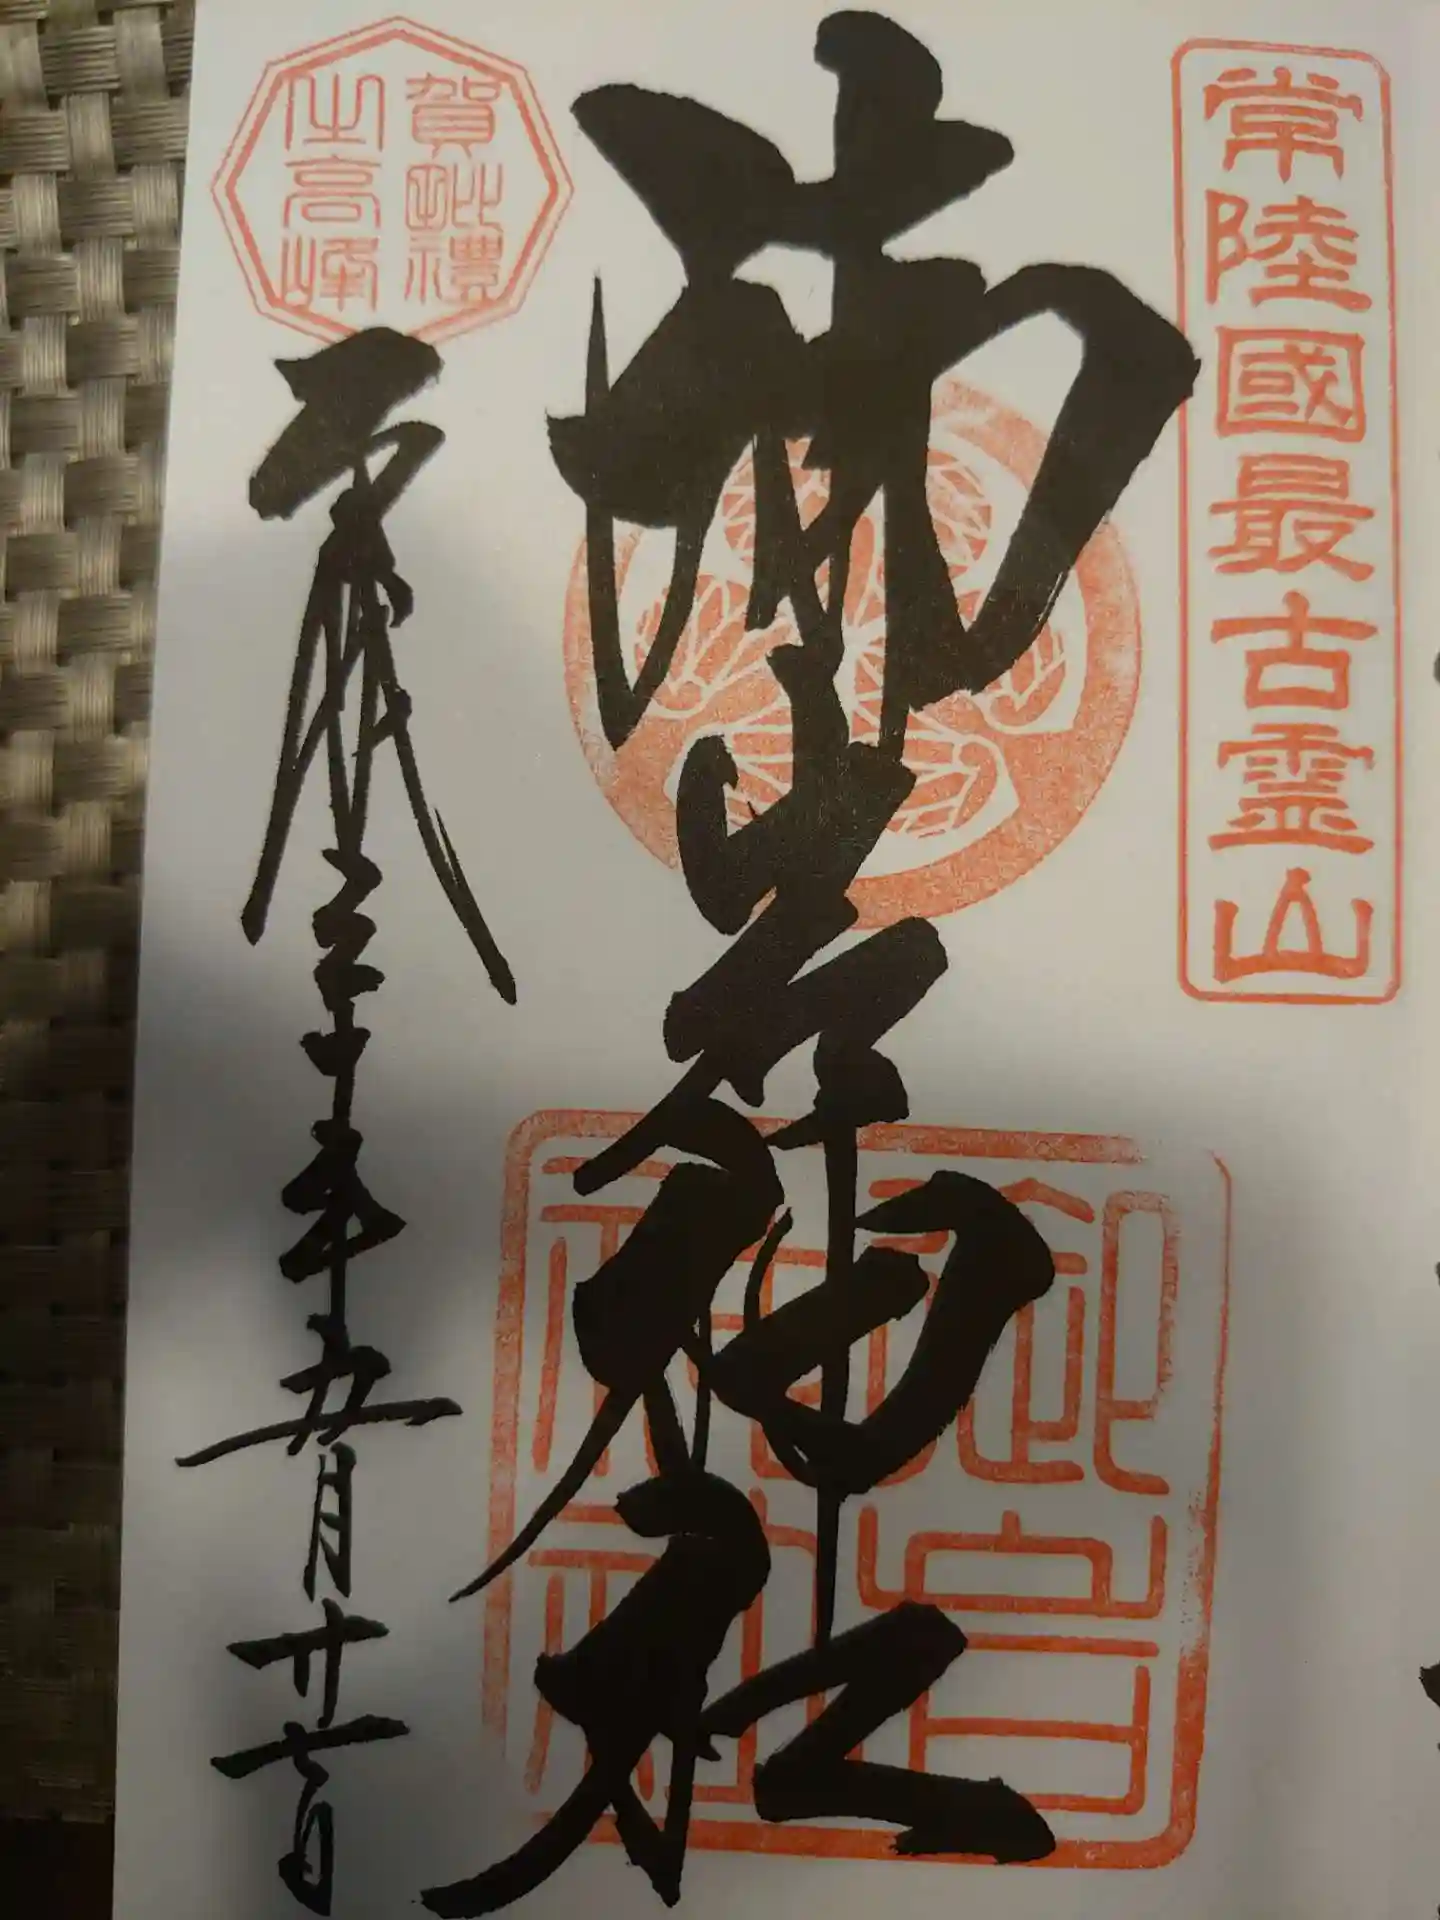 常陸國最古霊山
御岩神社
御岩神社
賀毗禮
之高峰
平成三十年五月廿七日